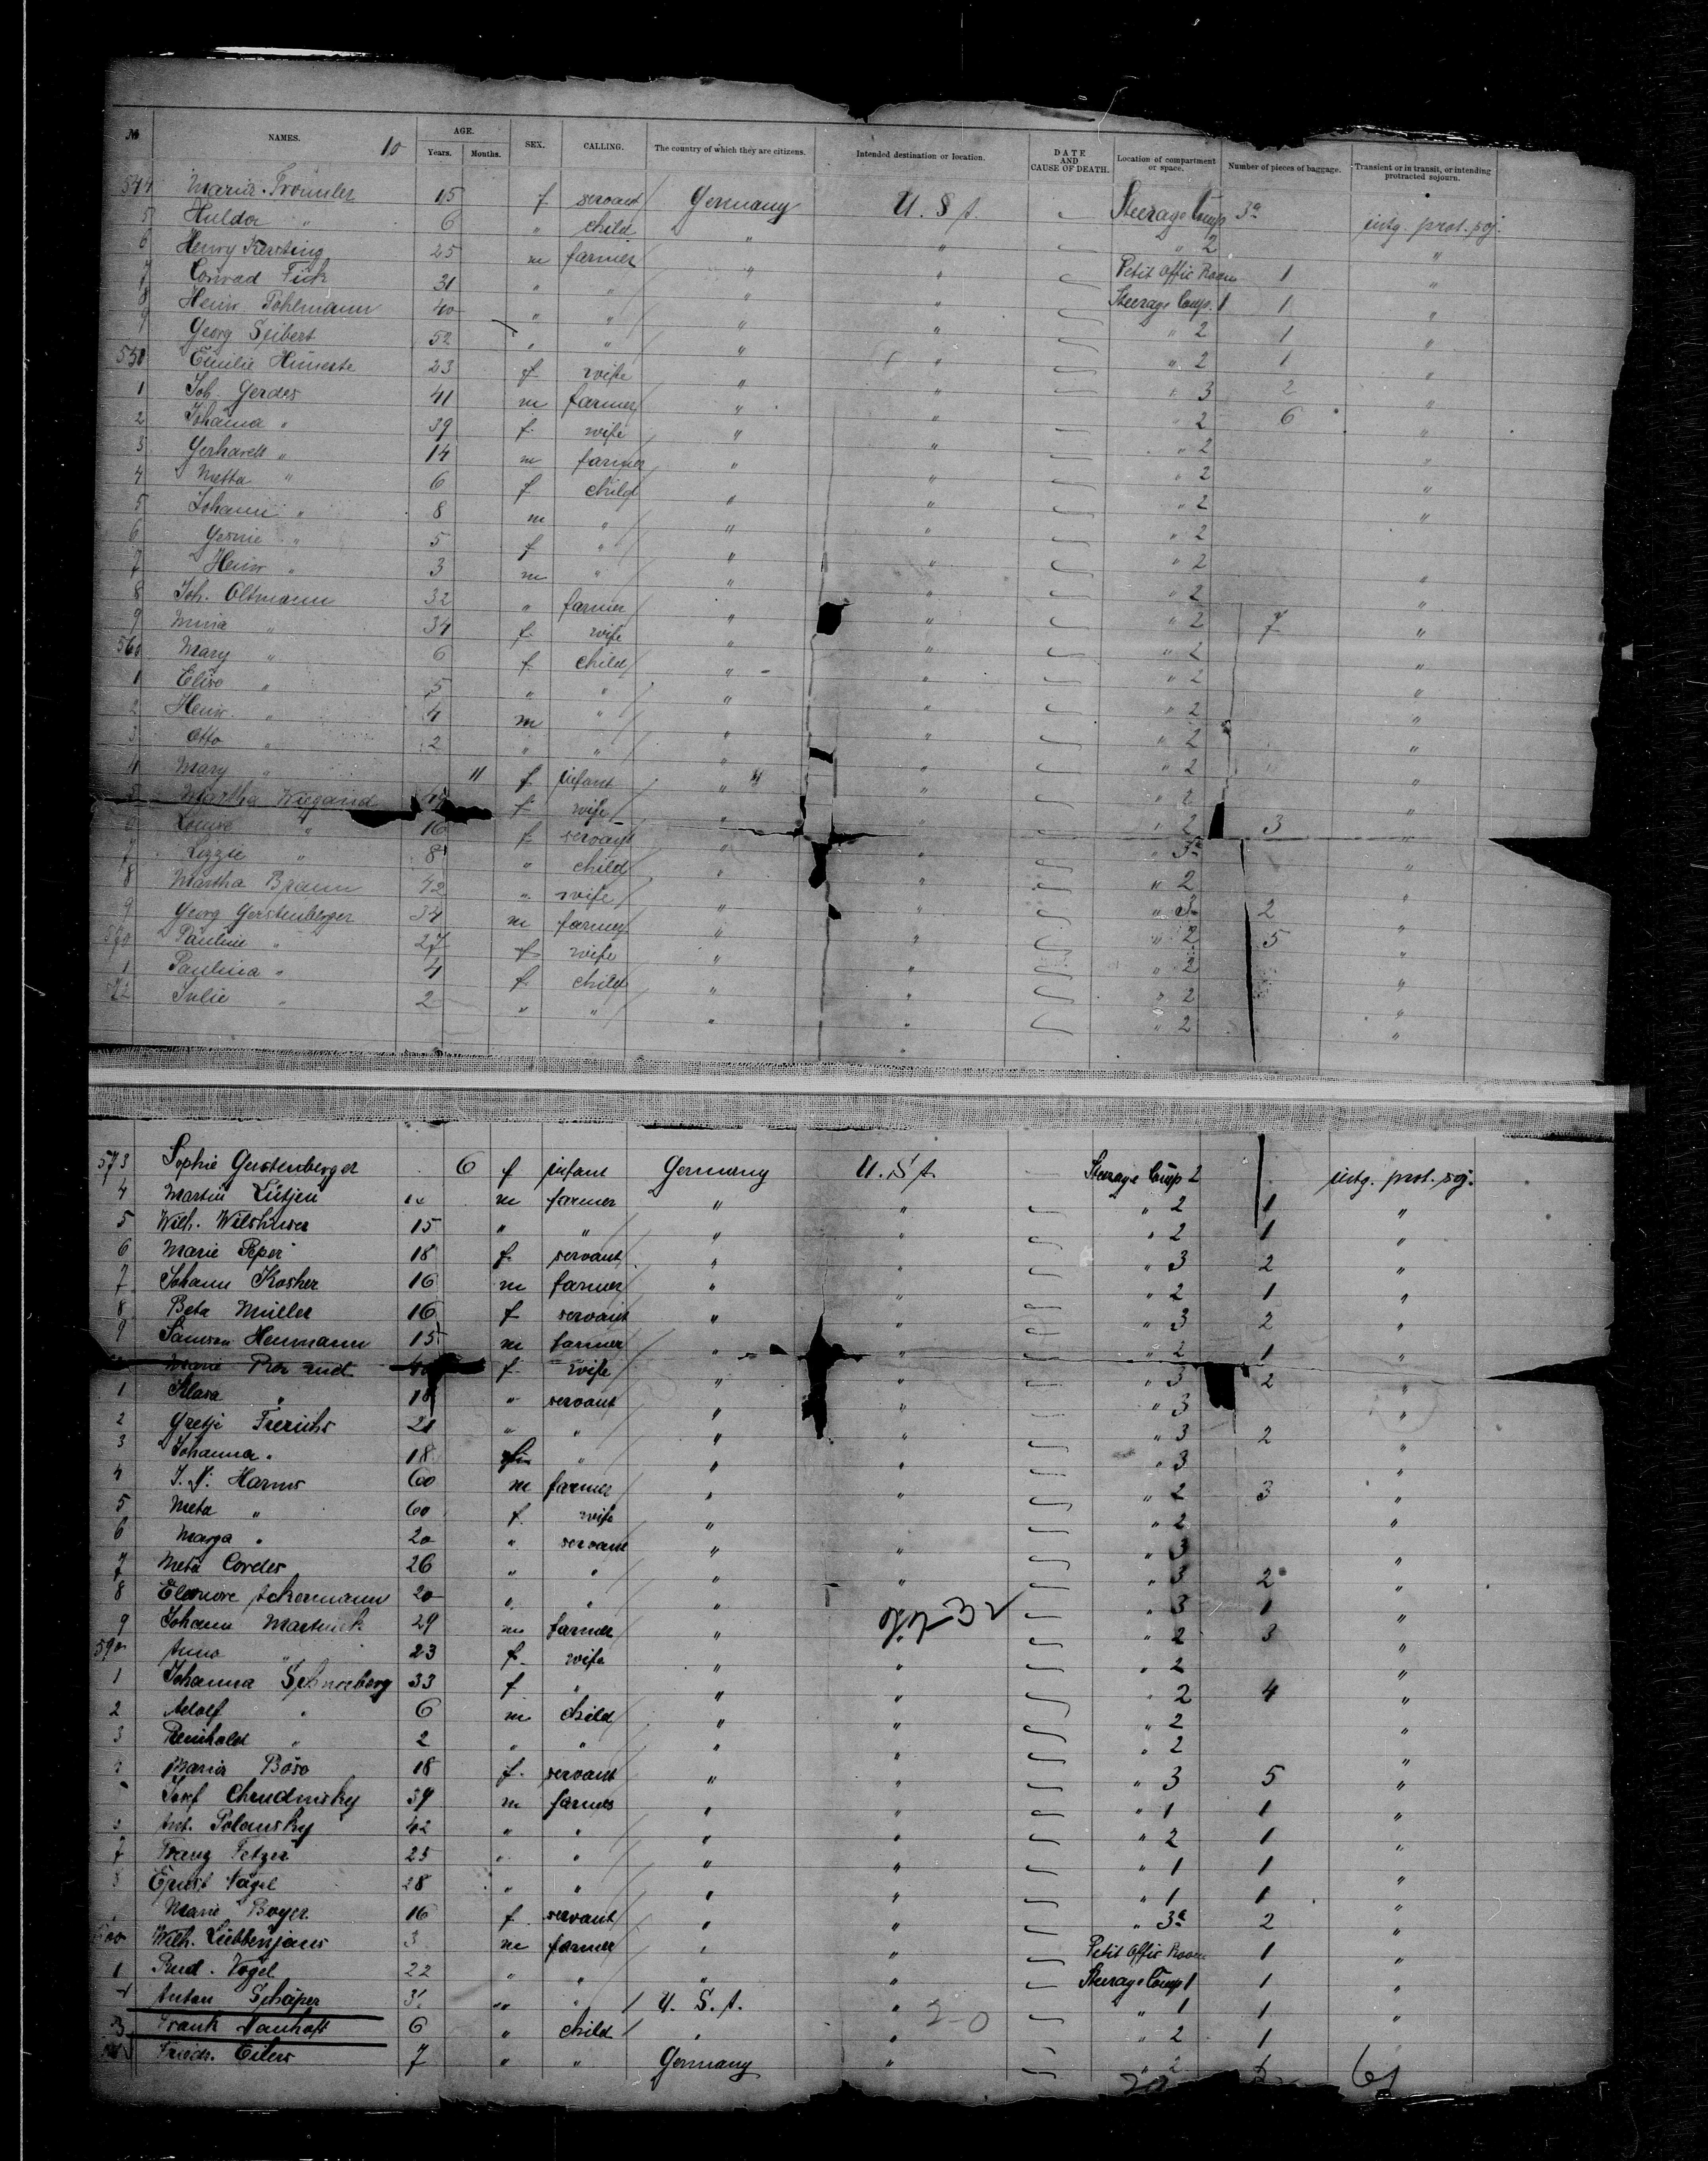 № NAMES. 10 AGE. Years. Months. SEX. CALLING. The country of which they are citizens. Intended destination or location. DATE AND CAUSE OF DEATH. Location of compartment or space. Number of pieces of baggage. Transient or in transit, or intending protracted sojourn.
544 Maria 15 f servant Germany U. S. A. Steerage Comp 3a intg. prot. soj.
5 Hulda " 6 " child " " " 2 "
6 Henry Kersting 25 m farmer " " Petit Offic Room 1 "
7 Conrad Fick 31 " " " " Steerage Comp. 1 1 "
8 Heinr Pohlmann 40 " " " " " 2 1 "
9 Georg Seibert 52 " " " " " 2 1 "
550 Emilie 23 f wife " " " 3 2 "
1 Joh Gerdes 41 m farmer " " " 2 6 "
2 Johanna " 39 f. wife " " " 2 "
3 Gerhardt " 14 m farmer " " " 2 "
4 Metta " 6 f child " " " 2 "
5 Johann " 8 m " " " " 2
6 " 5 f " " " " 2
7 Heinr " 3 m " " " " 2 "
8 Joh. Oltmann 32 " farmer " " " 2 7 "
9 Mina " 34 f. wife " " " 2 "
560 Mary " 6 f. child " " " 2 "
1 Elise " 5 " " " " " 2 "
2 Heinr. " 4 m " " " " 2 "
3 Otto " 2 " " " " " 2 "
4 Mary " 11 f infant " " " 2 "
Martha Wiegand f wife " " " 2 3 "
6 Louise " 16 f servant " " " 3a "
7 Lizzie " 8 " child " " " 2 "
8 Martha Braun 42 " wife " " " 3 2 "
9 Georg Gerstenberger 34 m farmer " " " 2 5 "
570 Pauline " 27 f wife " " " 2 "
1 Paulina " 4 f child " " " 2 "
72 Julie " 2 " " " " " 2 "
573 Sophie Gerstenberger 6 f infant Germany U. S. A. Steerage Comp 2 intg. prot. soj.
4 Martin Lütjen m farmer " " " 2 1 "
5 Wilh. 15 " " " " " 2 1 "
6 Marie Peper 18 f servant " " " 3 2 "
7 Johann Kosher 16 m farmer " " " 2 1 "
8 Beta Müller 16 f servant " " " 3 2 "
9 Heumann 15 m farmer " " " 2 1 "
Marie f wife " " " 3 2 "
1 Klara " 18 " servant " " " 3 "
2 Gretje Frerichs 21 " " " " " 3 2 "
3 Johanna " 18 " " " " 3 "
4 Harms 60 m farmer " " " 2 3 "
5 Meta " 60 f. wife " " " 2 "
6 Marga " 20 " servant " " " 3 "
7 Meta Cordes 26 " " " " " 3 2 "
8 Eleonore Ackermann 20 " " " " 3 1 "
9 Johann Martwick 29 m farmer " " " 2 3 "
590 Anna " 23 f. wife " " " 2 "
1 Johanna Schneeberg 33 f. " " " " 2 4 "
2 Adolf " 6 m child " " " 2 "
3 Reinhold " 2 " " " " " 2 "
Maria 18 f. servant " " " 3 5 "
Josef Chrudinsky 39 m farmer " " " 1 1 "
Ant. Polansky 42 " " " " " 2 1 "
7 Franz Fetzer 25 " " " " " 1 1 "
8 Ernst Nagel 28 " " " " " 1 1 "
Marie Boyer 16 f. servant " " " 3a 2 "
600 Wilh. Lübbenjans 3 m farmer " " Petit Offic Room 1 "
1 Rud. Vogel 22 " " " " Steerage Comp 1 1 "
Anton Schäper " " U. S. A. " " 1 1 "
3 Frank Nanhaft 6 " child " " " 2 1
Friedr. Eilers 7 " " Germany " " 2 61